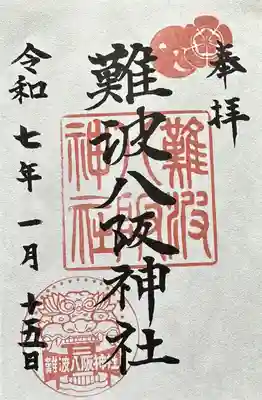 奉拝
難波八阪神社
難波八阪神社
令和七年一月十五日
難波八阪神社